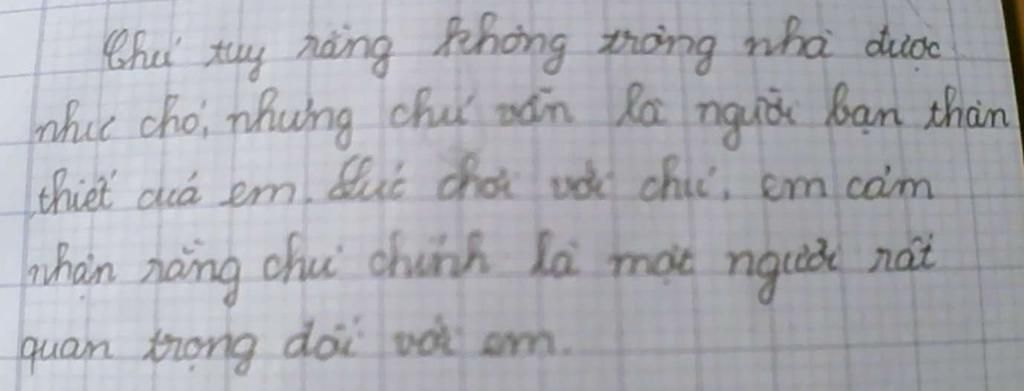 Chú tuy rằng không trông nhà được
như chó, nhưng chú vẫn là người bạn thân
thiết của em. Lúc chơi với chú, em cảm
nhận rằng chú chính là một người rất
quan trọng đối với em.